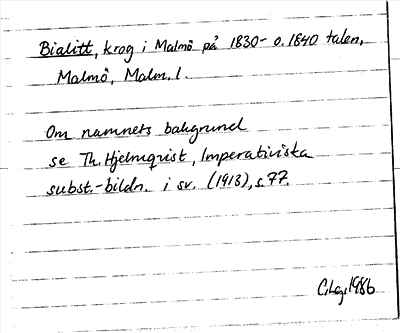 Bialitt, krog i Malmö på 1830- o. 1840 talen,
Malmö, Malm. l.
Om namnets bakgrund
se Th. Hjelmqvist, Imperativiska
subst.-bildn. i sv. (1913), s. 77.
1986